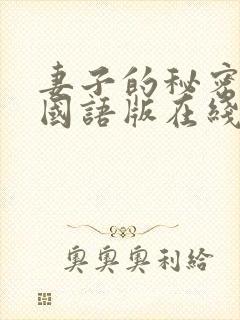 妻子的秘密
國語版在綫
奧奧奧利給